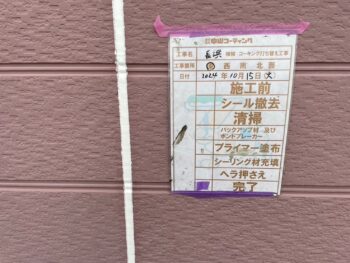 中山コーティング
工事名 長浜 様邸 コーキング打ち替え工事
工事箇所 東 西 南 北 面
日付 2024 年 10 月 15 日 (火)
施工前
シール撤去
清掃
バックアップ材 及び
ボンドブレーカー
プライマー塗布
シーリング材充填
ヘラ押さえ
完了